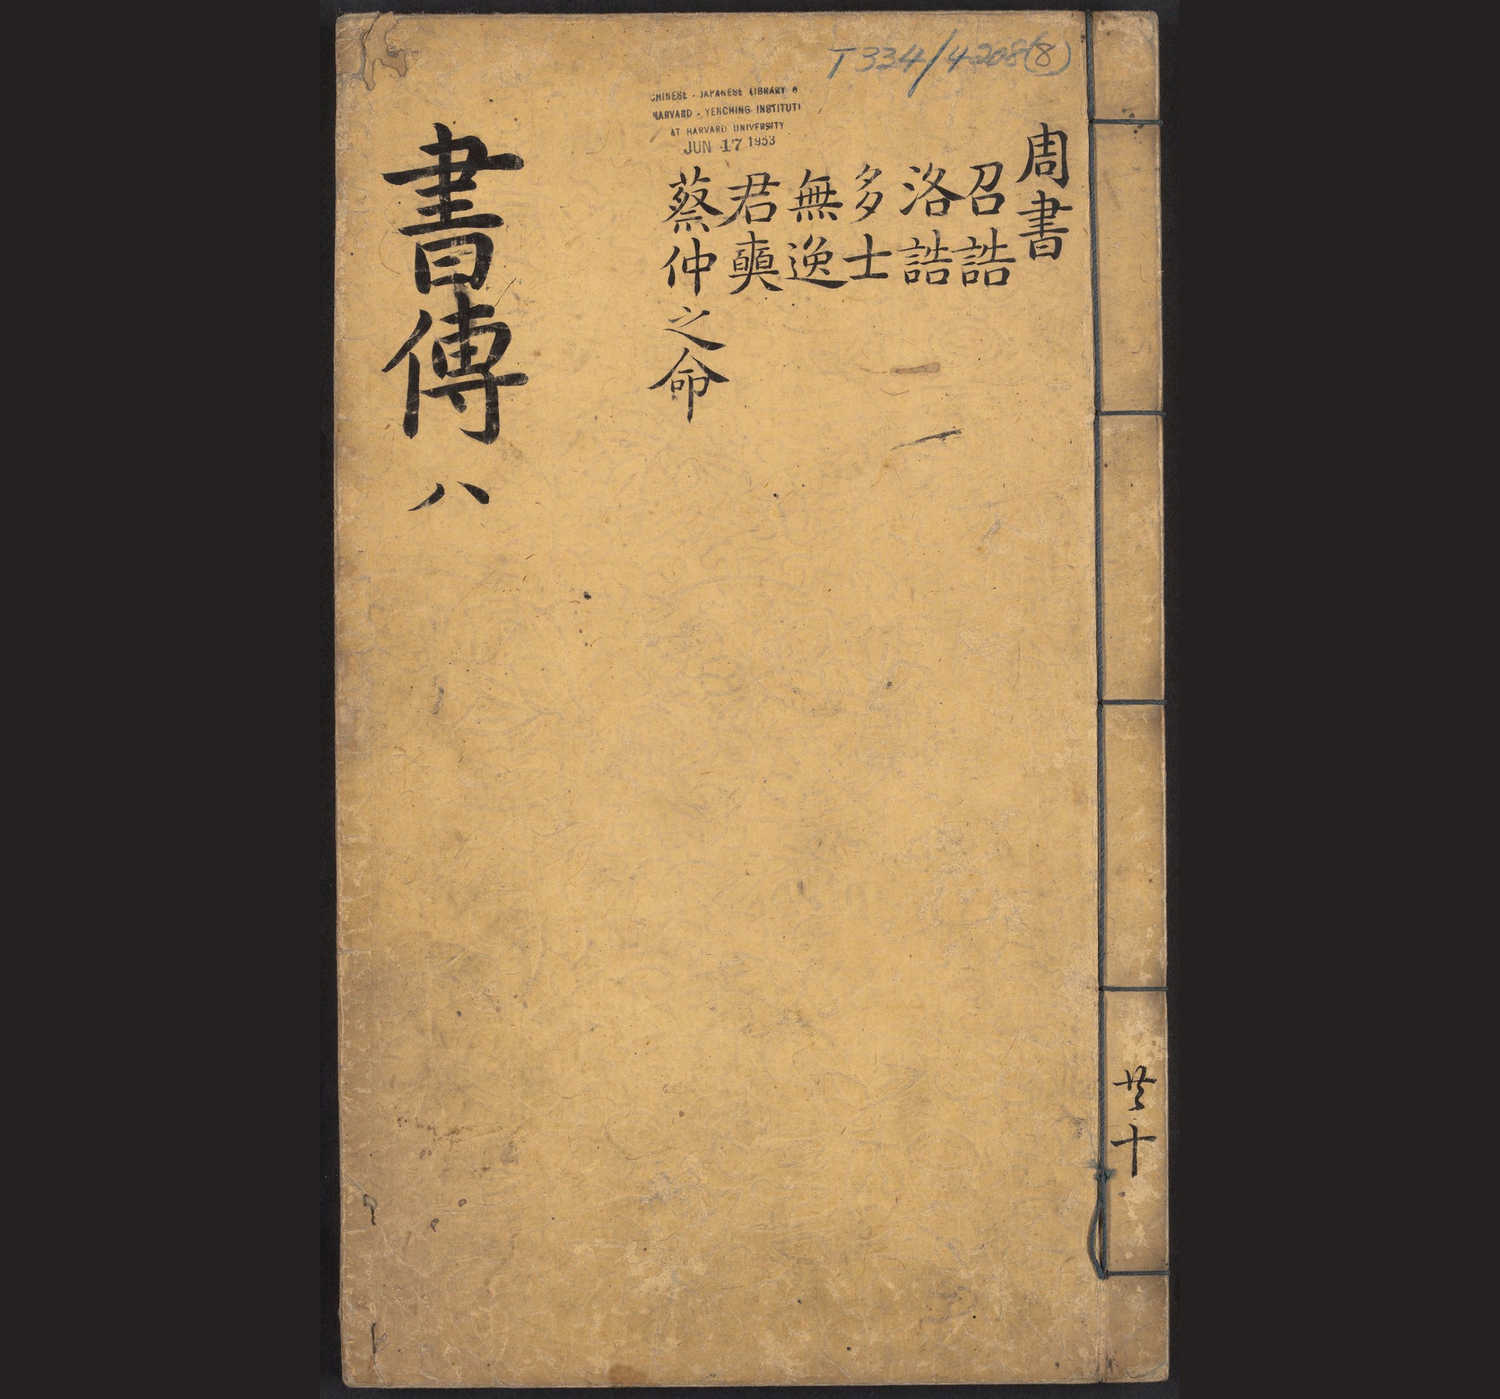 T334/4208(8)
CHINESE - JAPANESE LIBRARY
HARVARD - YENCHING INSTITUTE
AT HARVARD UNIVERSITY
JUN 17 1953
周書
召誥
洛誥
多士
無逸
君奭
蔡仲之命
書傳
八
共十